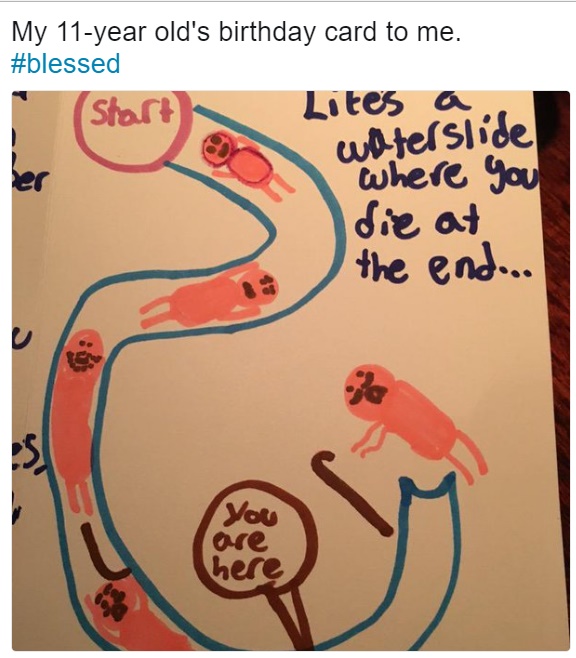 My 11-year old's birthday card to me.
#blessed
Start
Lifes a
waterslide
where you
die at
the end...
er
es,
You
are
here